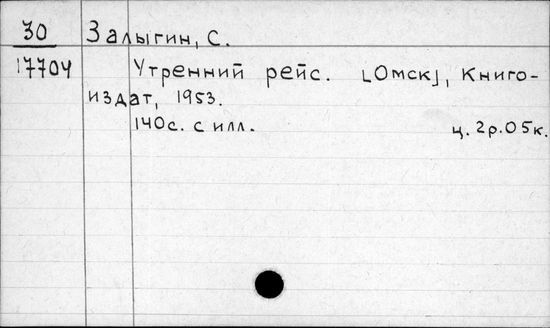 30 Залыгин, С.
17704 Утренний рейс. [Омск], Книго-
издат, 1953.
140с. с илл. ц. 2р.05к.